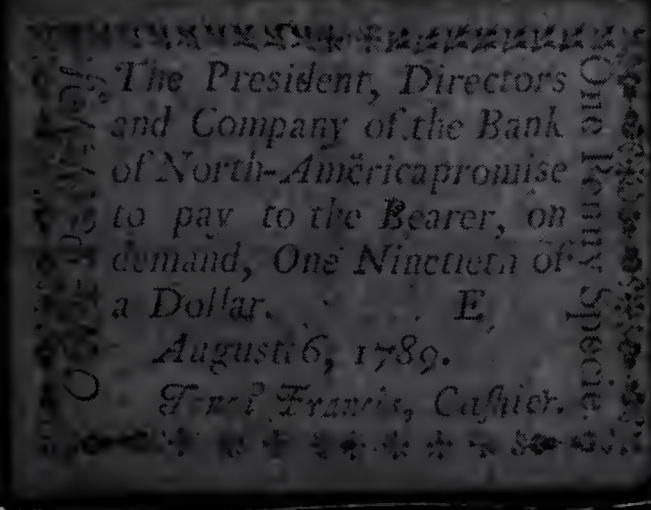 The President, Directors
and Company of the Bank
of North-America promise
to pay to the Bearer, on
demand, One Ninetieth of
a Dollar. E,
August 6, 1789.
Francis, Caſhier.
One Penny Specie.